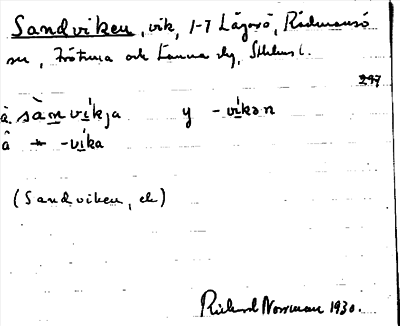 Sandviken, vik, 1-7 Lägarö, Rådmansö
sn, Frötuna och Länna slg, Sthlms l.
297
å. sànvíkja y -víkən
å -víka
(Sandviken, ek)
Rickard Norrman 1930.